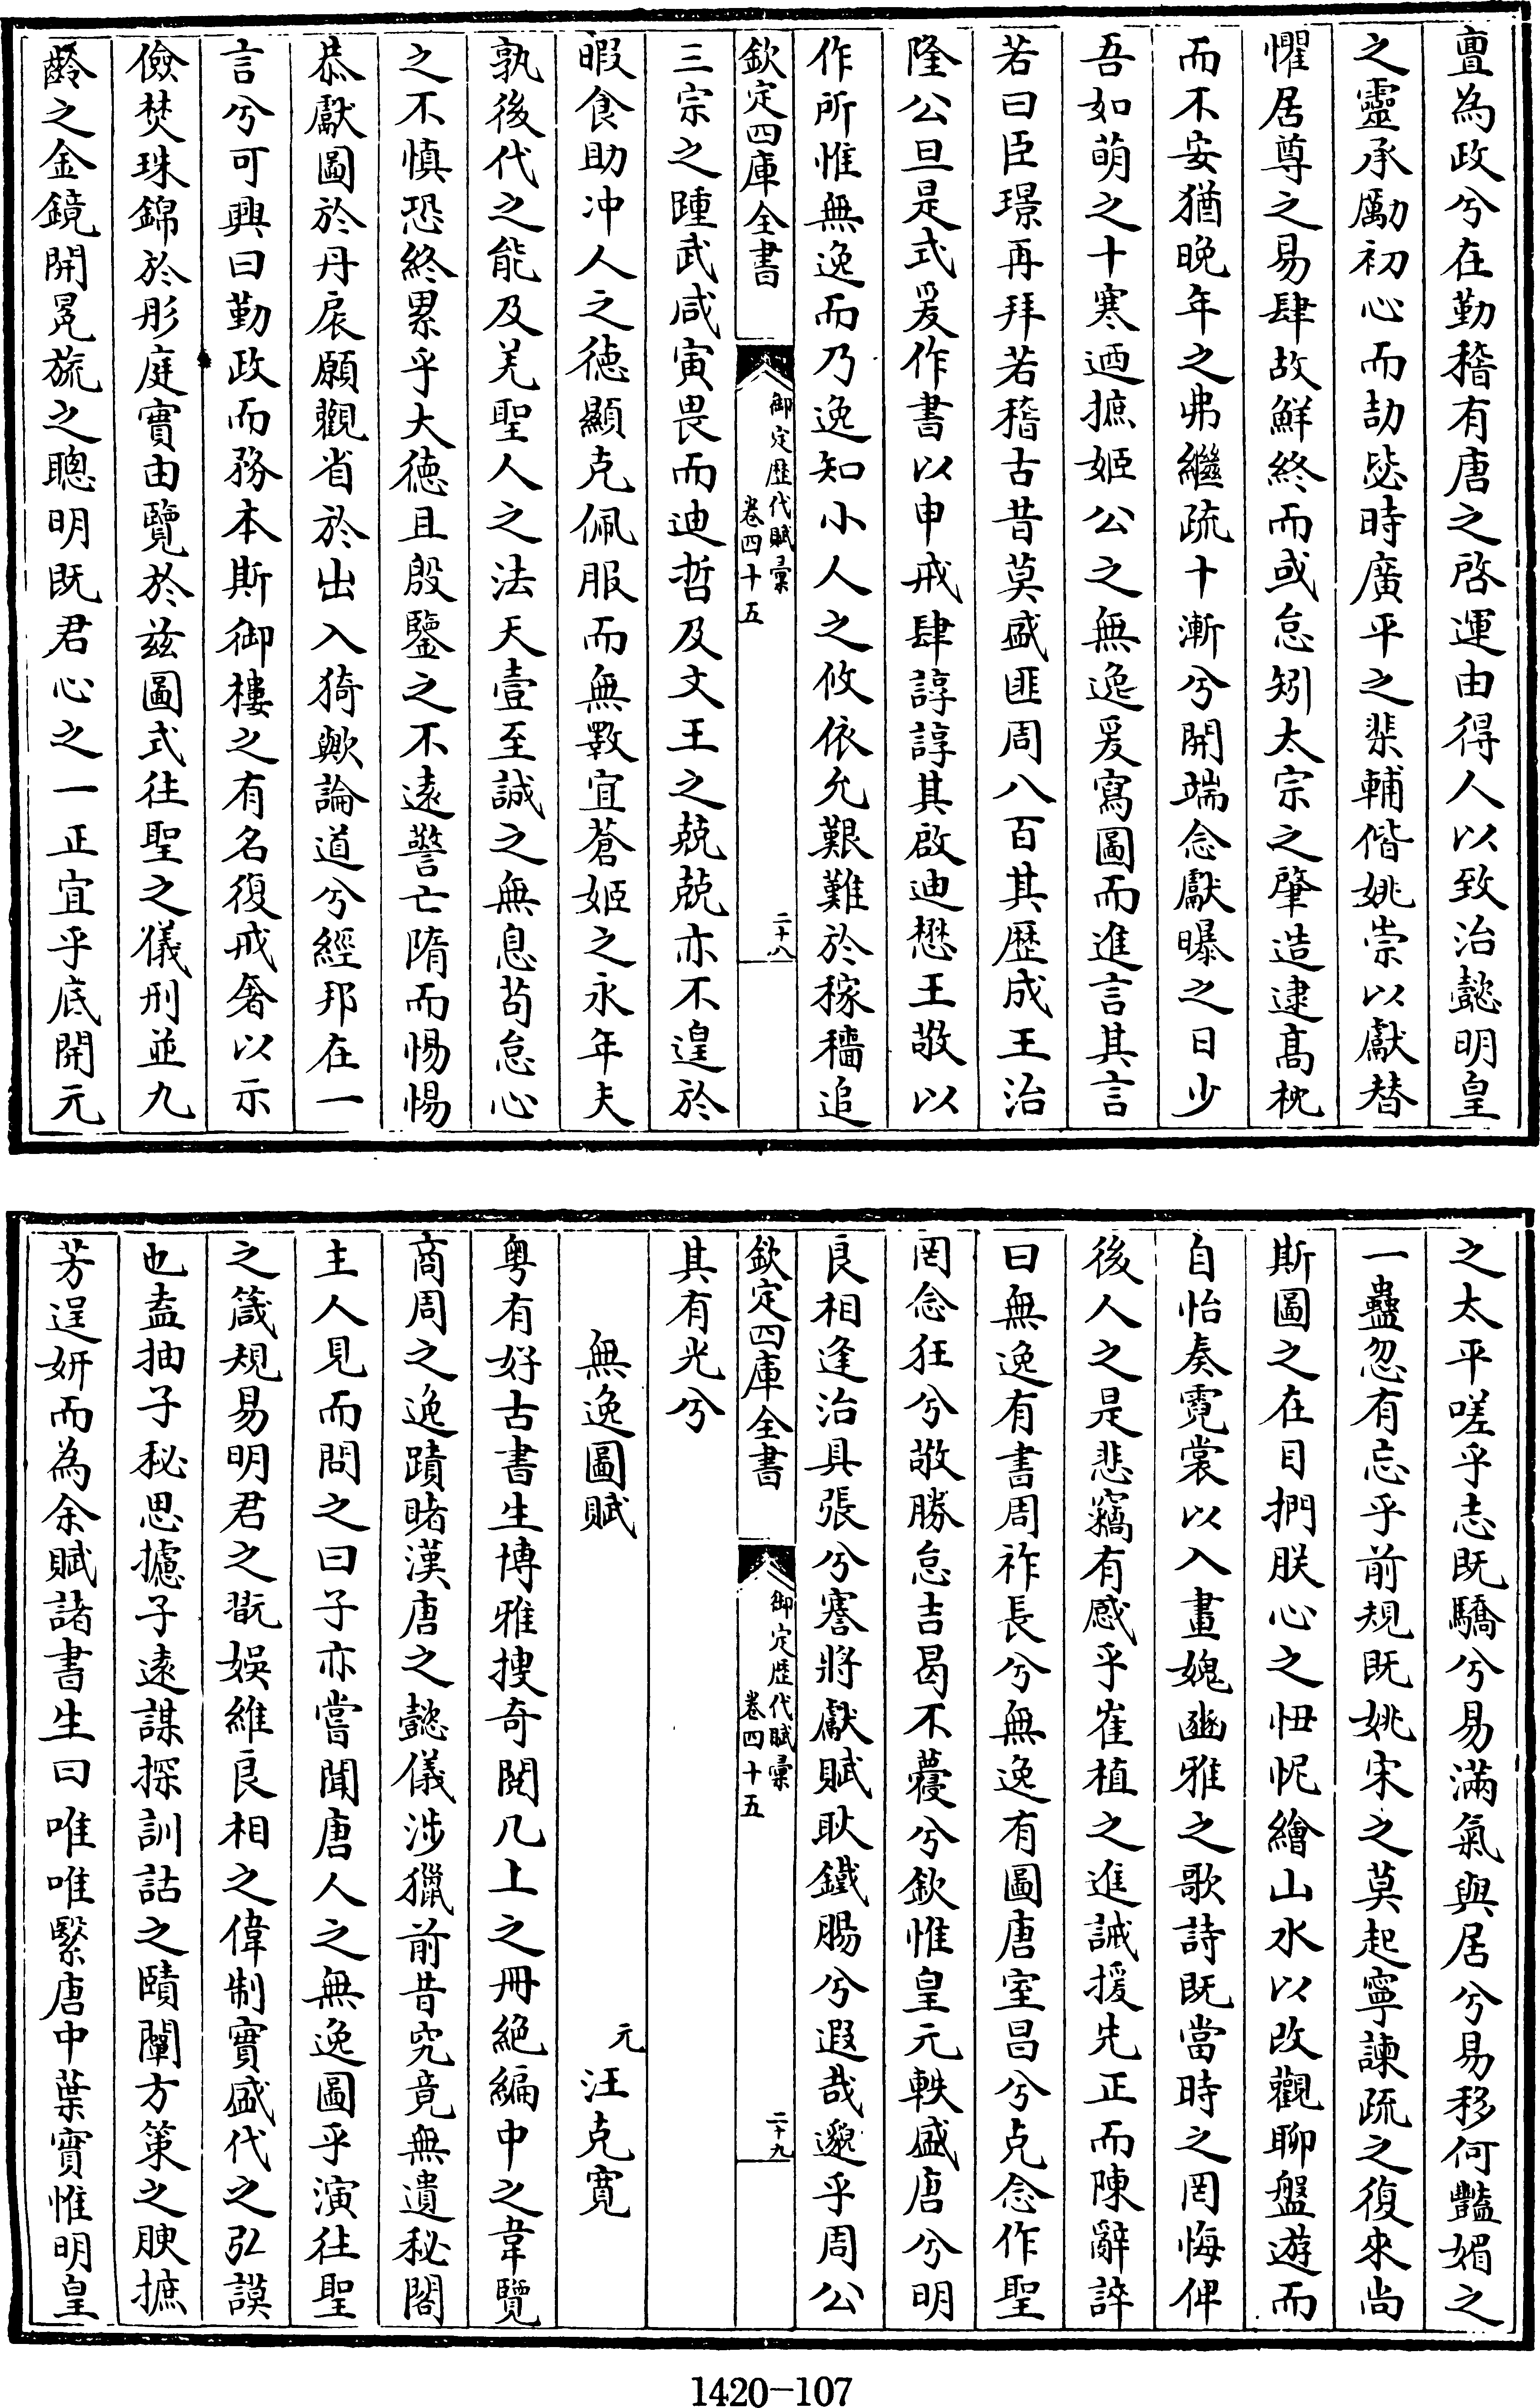 亶為政兮在勤稽有唐之啓運由得人以致治懿明皇
之靈承勵初心而劼毖時廣平之棐輔偕姚崇以獻替
懼居尊之易肆故鮮終而或怠矧太宗之肇造逮髙枕
而不安猶晚年之弗繼疏十漸兮開端念獻曝之日少
吾如萌之十寒迺摭姬公之無逸爰寫圖而進言其言
若曰臣璟再拜若稽古昔莫盛匪周八百其歴成王治
隆公旦是式爰作書以申戒肆諄諄其啟迪懋王敬以
作所惟無逸而乃逸知小人之攸依允艱難於稼穡追
欽定四庫全書
御定歴代賦彚
卷四十五
二十八
三宗之踵武咸寅畏而迪哲及文王之兢兢亦不遑於
暇食助冲人之徳顯克佩服而無斁宜蒼姬之永年夫
孰後代之能及羌聖人之法天壹至誠之無息苟怠心
之不慎恐終累乎大徳且殷鑒之不逺警亡隋而惕惕
恭獻圖於丹扆願觀省於出入猗歟論道兮經邦在一
言兮可興曰勤政而務本斯御樓之有名復戒奢以示
儉焚珠錦於彤庭實由覽於兹圖式往聖之儀刑並九
齡之金鏡開冕旒之聰明既君心之一正宜乎底開元
之太平嗟乎志既驕兮易滿氣與居兮易移何豔媚之
一蠱忽有忘乎前規既姚宋之莫起寧諫疏之復來尚
斯圖之在目捫朕心之忸怩繪山水以改觀聊盤遊而
自怡奏霓裳以入畫媿豳雅之歌詩既當時之罔悔俾
後人之是悲竊有感乎崔植之進誡援先正而陳辭誶
曰無逸有書周祚長兮無逸有圖唐室昌兮克念作聖
罔念狂兮敬勝怠吉曷不蘉兮欽惟皇元軼盛唐兮明
良相逢治具張兮謇將獻賦耿鐵賜兮遐哉邈乎周公
欽定四庫全書
御定歴代賦彚
卷四十五
二十九
其有光兮
無逸圖賦
元汪克寛
粤有好古書生博雅搜奇閱几上之冊絶編中之韋覽
商周之逸蹟睹漢唐之懿儀涉獵前昔究竟無遺秘閣
主人見而問之曰子亦嘗聞唐人之無逸圖乎演往聖
之箴規易明君之翫娛維良相之偉制實盛代之弘謨
也盍抽子秘思攄子逺謀探訓詁之賾闡方策之腴摭
芳逞妍而為余賦諸書生曰唯唯繄唐中葉實惟明皇
1420-107